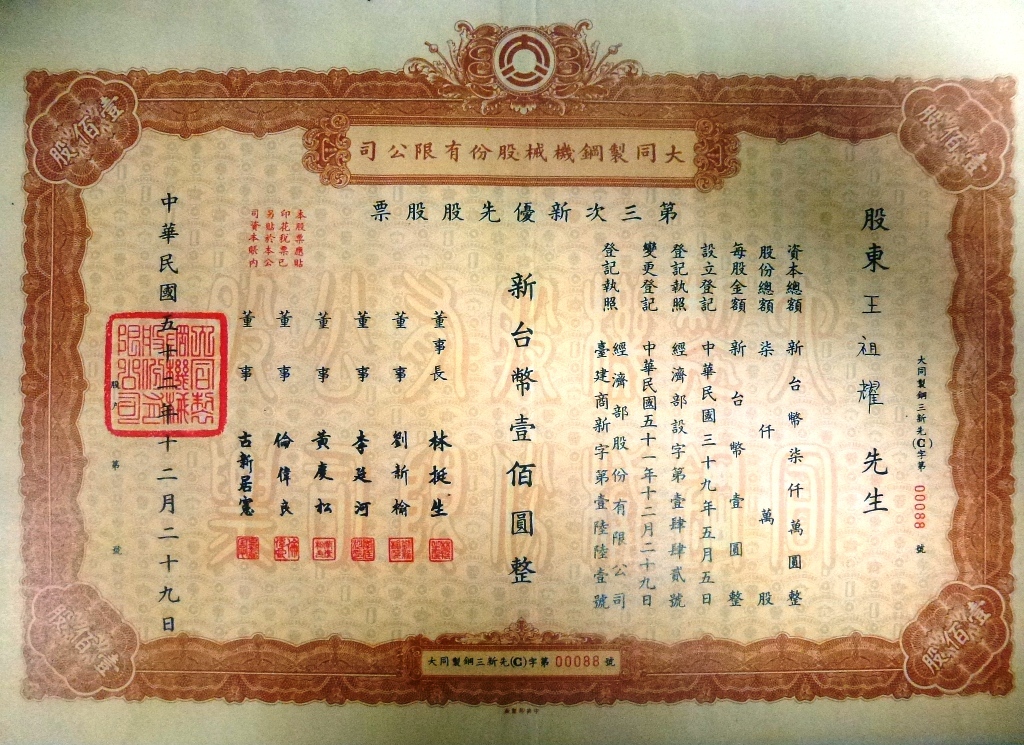 大同製鋼機械股份有限公司
壹佰股
壹佰股
第三次新優先股股票
大同製鋼三新先(C)字第 00088 號
股東 王祖耀 先生
資本總額 新台幣柒仟萬圓整
股份總額 柒仟萬股
每股金額 新台幣壹圓整
設立登記 中華民國三十九年五月五日
登記執照 經濟部設字第壹肆肆貳號
變更登記 中華民國五十一年十二月二十九日
登記執照 經濟部股份有限公司
臺建商新字第壹陸陸壹號
新台幣壹佰圓整
董事長 林挺生
董事 劉新榆
董事 李延河
董事 黃慶松
董事 倫偉良
董事 古新若寬
本股票應貼
印花稅票已
另貼於本公
司資本帳內
中華民國五十二年十二月二十九日
大同製鋼機械股份有限公司
第 號
壹佰股
壹佰股
大同製鋼三新先(C)字第 00088 號